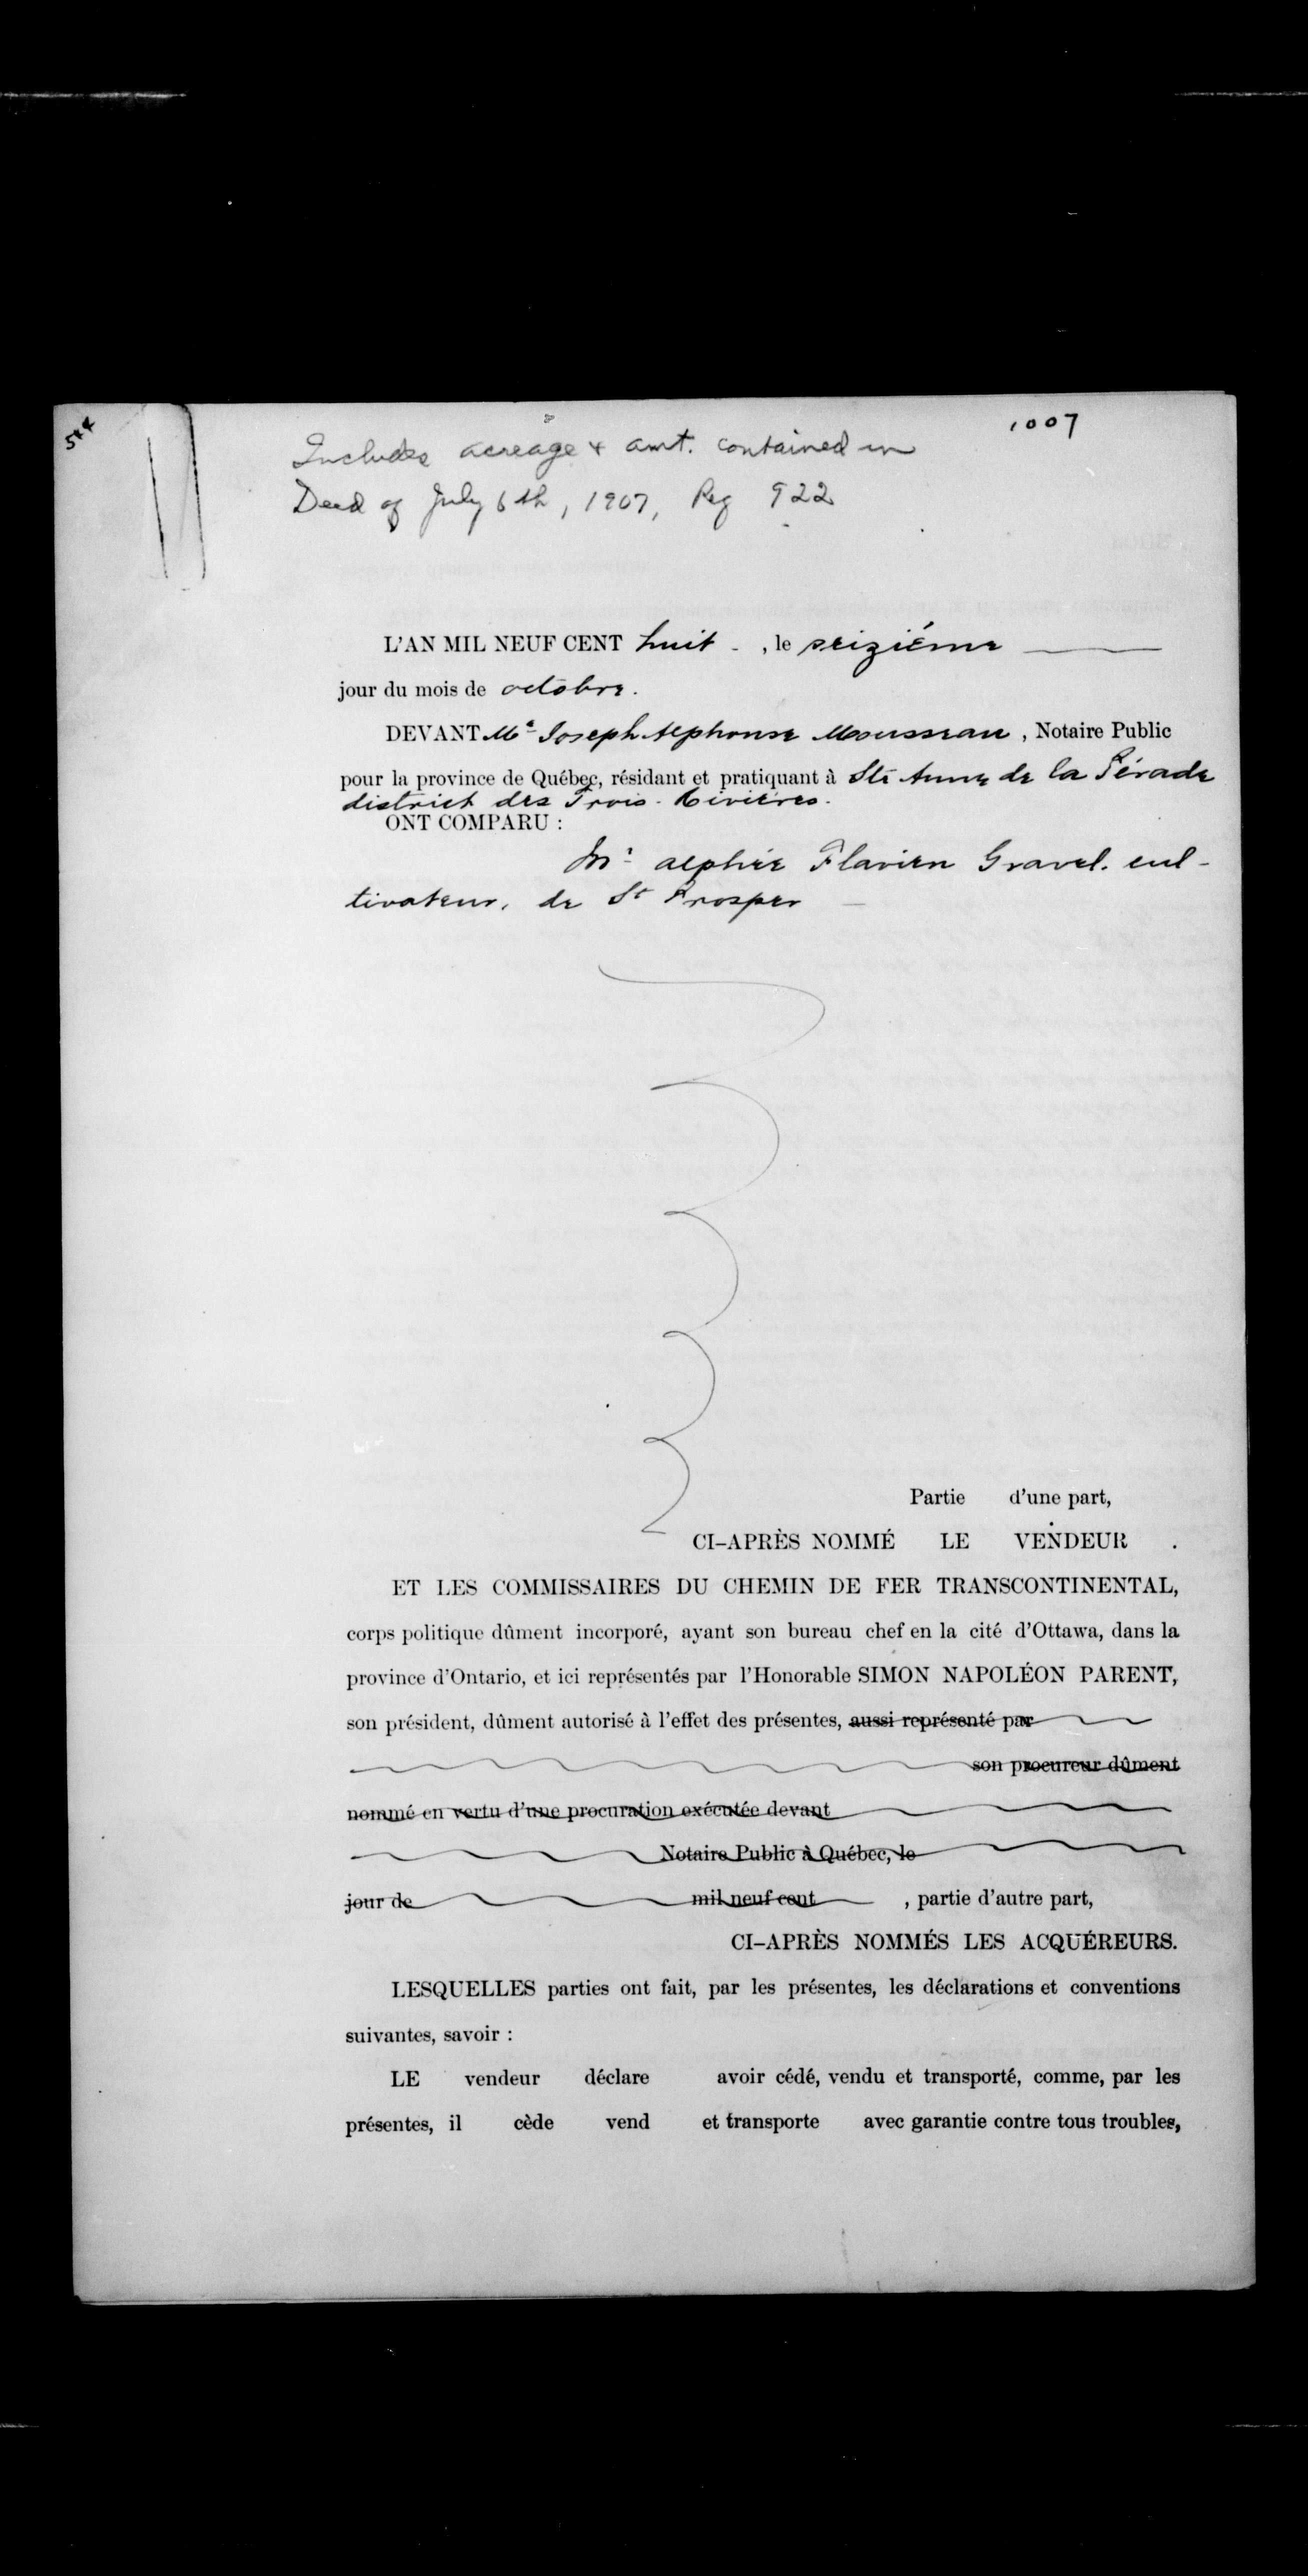 544
1007
Includes acreage & amt. contained in
Deed of July 6th, 1907, Reg 922
L'AN MIL NEUF CENT huit - , le seizième
jour du mois de octobre.
DEVANT Me Joseph Alphonse Mousseau , Notaire Public
pour la province de Québec, résidant et pratiquant à Ste Anne de la Pérade
district des Trois-Rivières.
ONT COMPARU :
Mr alphée Flavien Gravel. cul-
tivateur, de St Prosper
Partie d'une part,
CI-APRÈS NOMMÉ LE VENDEUR .
ET LES COMMISSAIRES DU CHEMIN DE FER TRANSCONTINENTAL,
corps politique dûment incorporé, ayant son bureau chef en la cité d'Ottawa, dans la
province d'Ontario, et ici représentés par l'Honorable SIMON NAPOLÉON PARENT,
son président, dûment autorisé à l'effet des présentes, aussi représenté par
son procureur dûment
nommé en vertu d'une procuration exécutée devant
Notaire Public à Québec, le
jour de mil neuf cent , partie d'autre part,
CI-APRÈS NOMMÉS LES ACQUÉREURS.
LESQUELLES parties ont fait, par les présentes, les déclarations et conventions
suivantes, savoir :
LE vendeur déclare avoir cédé, vendu et transporté, comme, par les
présentes, il cède vend et transporte avec garantie contre tous troubles,